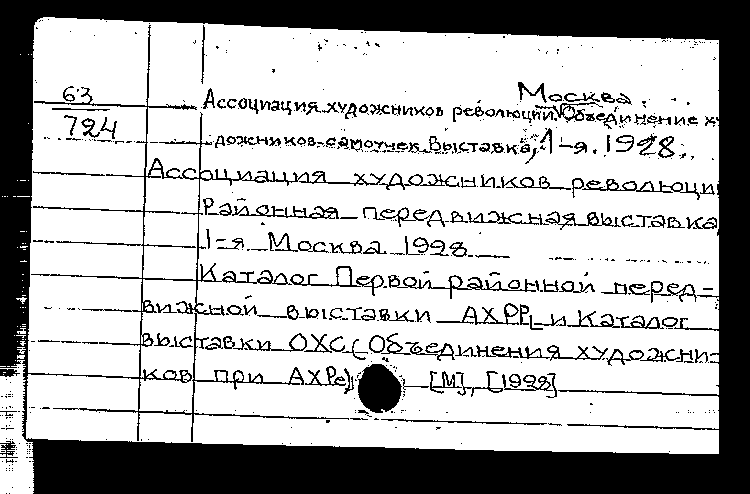 63
724
Москва.
Ассоциация художников революции. Объединение ху-
дожников-самоучек. Выставка, 1-я. 1928.
Ассоциация художников революци
Районная передвижная выставка,
1-я Москва 1928
Каталог Первой районной перед-
вижной выставки АХРР, и Каталог
выставки ОХС (Объединения художни-
ков при АХРе)
[М], [1928]